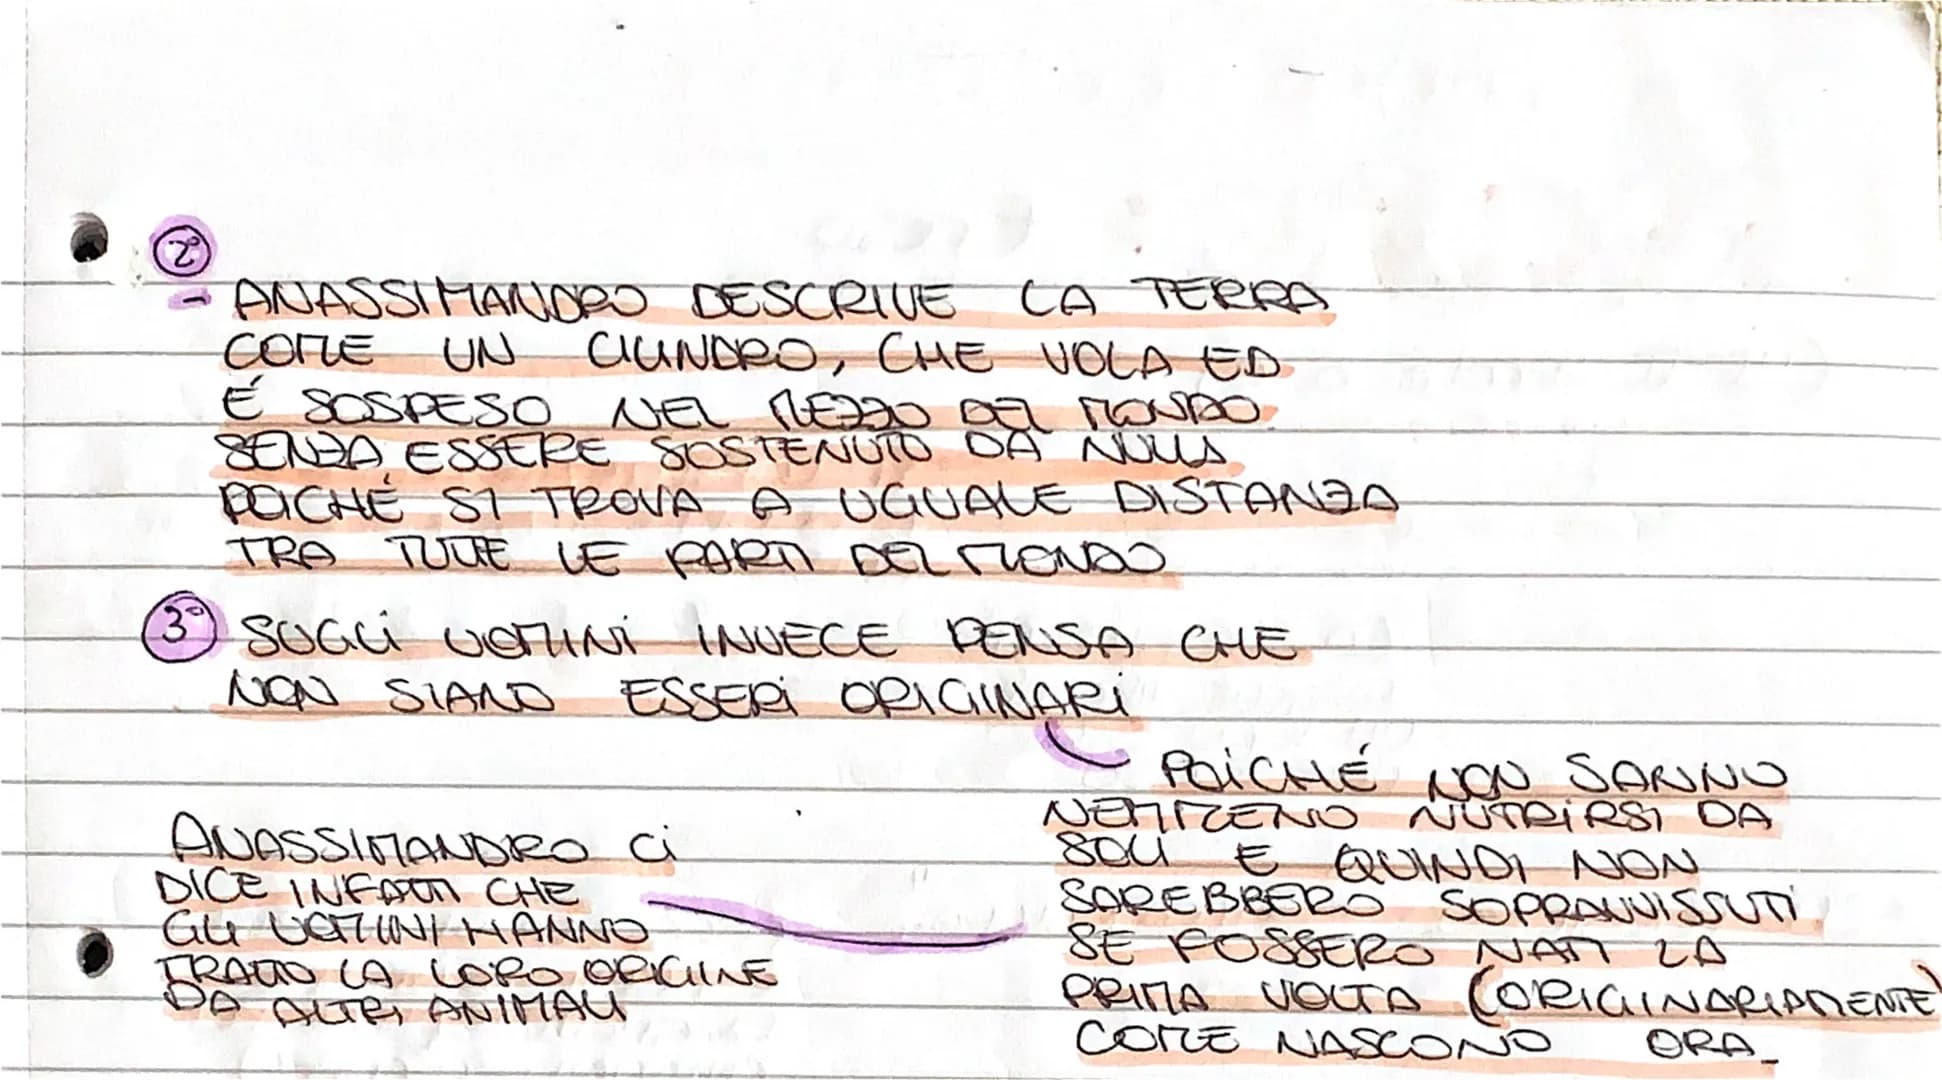 2°
- ANASSIMANDRO DESCRIVE LA TERRA
COME UN CILINDRO, CHE VOLA ED
É SOSPESO NEL MEZZO DEL MONDO
SENZA ESSERE SOSTENUTO DA NULLA
POICHÉ SI TROVA A UGUALE DISTANZA
TRA TUTTE LE PARTI DEL MONDO
3° SUGLI UOMINI INVECE PENSA CHE
NON SIANO ESSERI ORIGINARI
POICHÉ NON SANNO
NEMMENO NUTRIRSI DA
SOLI E QUINDI NON
SAREBBERO SOPRAVVISSUTI
SE FOSSERO NATI LA
PRIMA VOLTA (ORIGINARIAMENTE)
COME NASCONO ORA_
ANASSIMANDRO CI
DICE INFATTI CHE
GLI UOMINI HANNO
TRATTO LA LORO ORIGINE
DA ALTRI ANIMALI